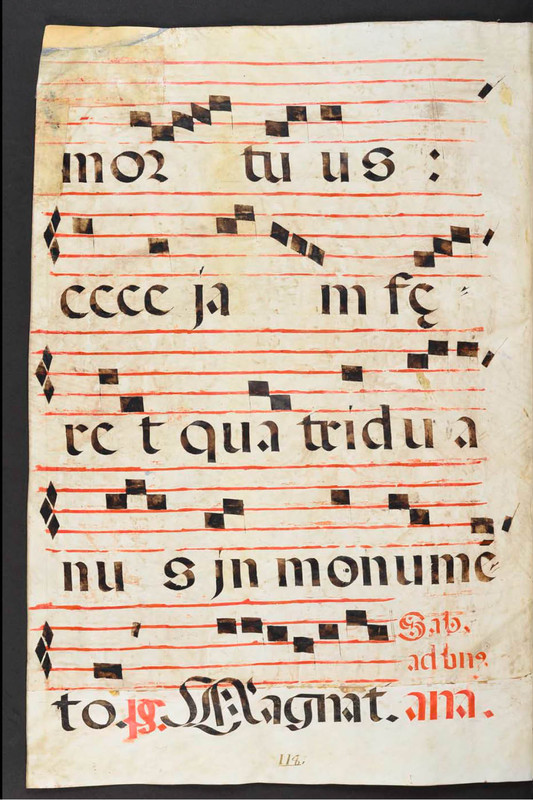 mor tu us :
ecce ja m fę
re t qua tridu a
nu s jn monumē
to. ps. Magnat.
Sab.
ad bn9.
ana.
118.